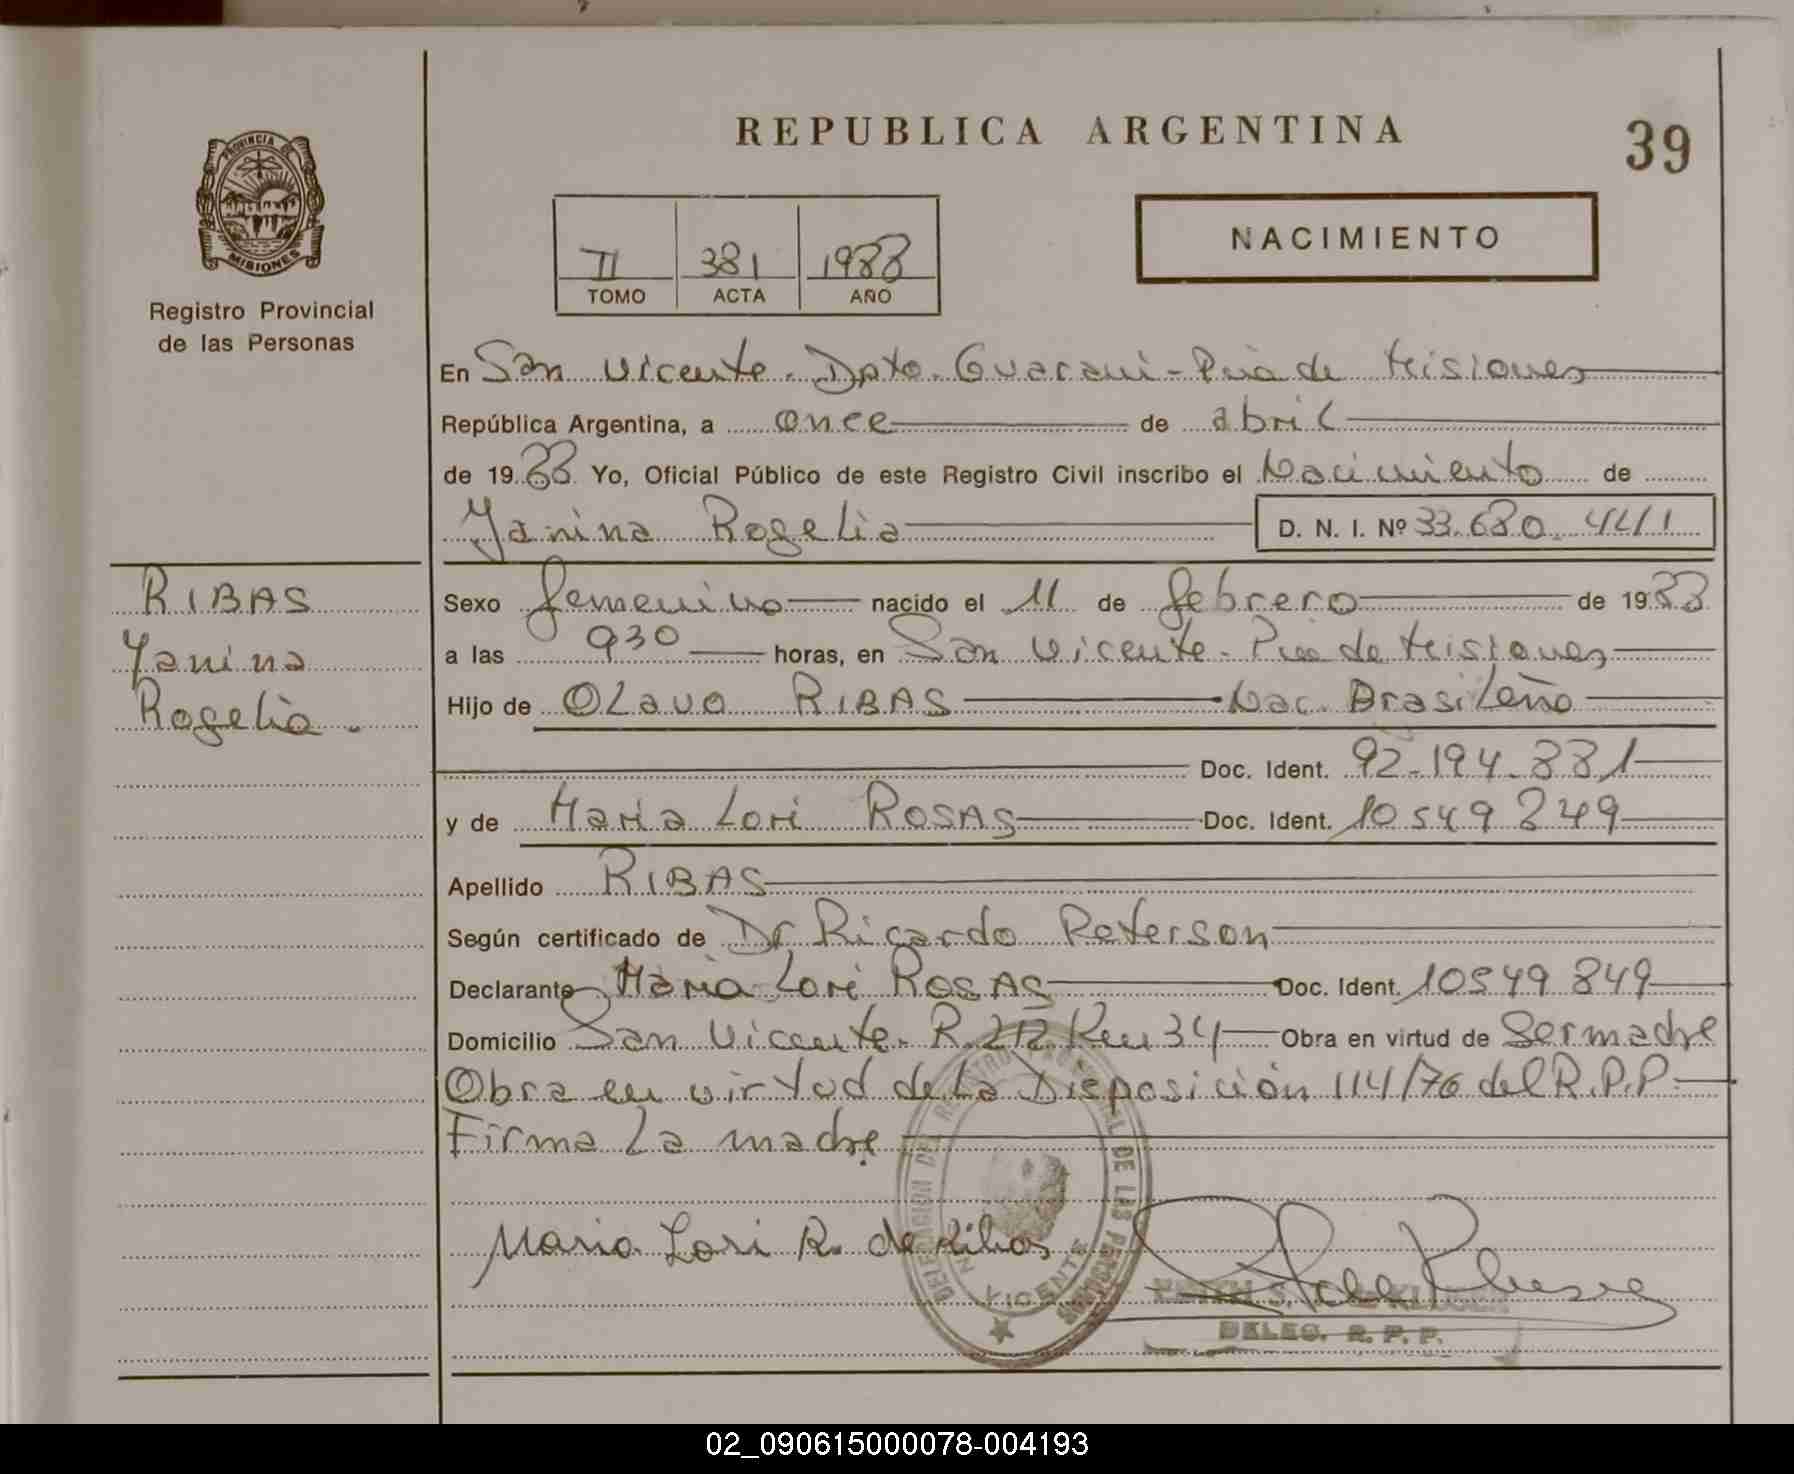 REPUBLICA ARGENTINA
39
PROVINCIA DE
MISIONES
Registro Provincial
de las Personas
NACIMIENTO
II 381 1988
TOMO ACTA AÑO
En San Vicente - Dpto. Guaraní - Pcia de Misiones
República Argentina, a once de abril
de 1988 Yo, Oficial Público de este Registro Civil inscribo el Nacimiento de
Yanina Rogelia D. N. I. Nº 33.680.441
RIBAS
Yanina
Rogelia.
Sexo femenino nacido el 11 de febrero de 1988
a las 930 horas, en San Vicente - Pcia de Misiones
Hijo de OLavo RIBAS - Nac. Brasileño
Doc. Ident. 92.194.881
y de Maria Lori ROSAS Doc. Ident. 10549849
Apellido RIBAS
Según certificado de Dr Ricardo Peterson
Declarante Maria Lori ROSAS Doc. Ident. 10549849
Domicilio San Vicente - R. 212 Km 34 Obra en virtud de Ser madre
Obra en virtud de la Disposición 114/76 del R.P.P.
Firma La madre
Maria Lori R. de Ribas
DELEGACION DEL REGISTRO PROVINCIAL DE LAS PERSONAS
VICENTE
DELEG. R. P. P.
02_090615000078-004193